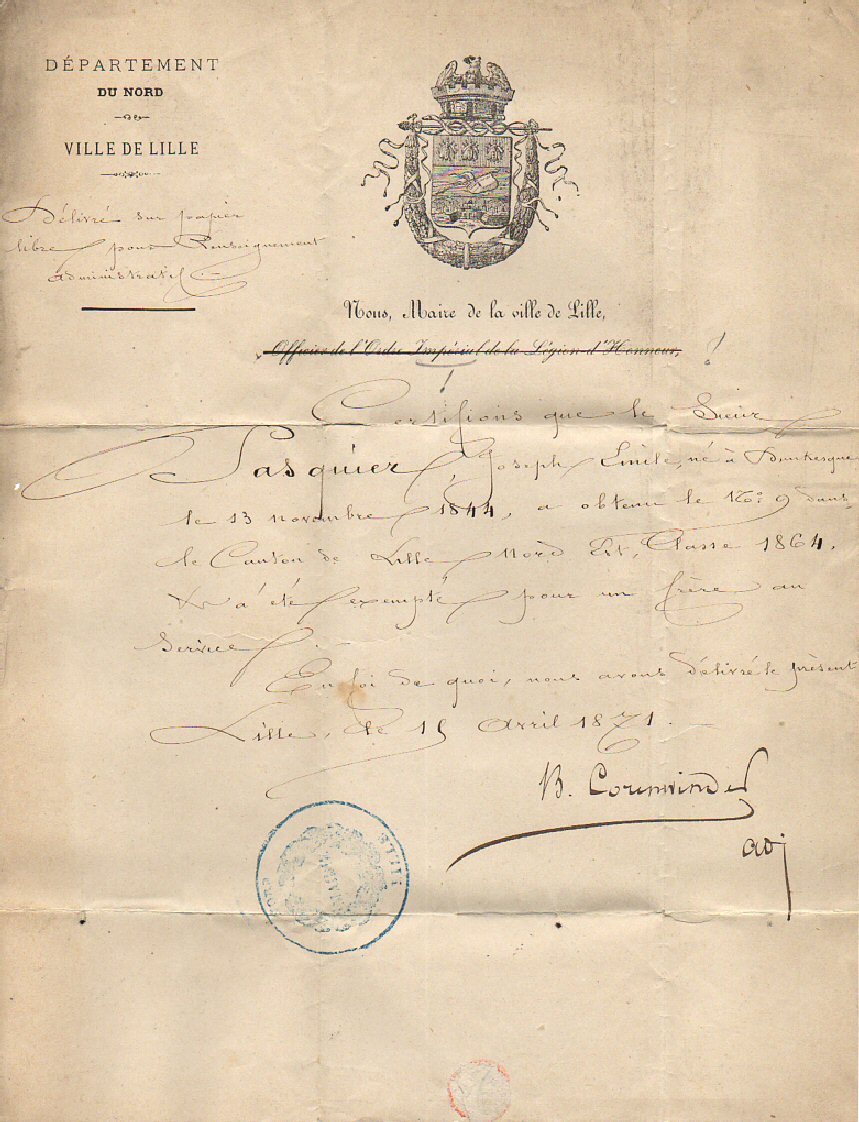 DÉPARTEMENT
DU NORD
VILLE DE LILLE
Délivré sur papier
libre pour Renseignement
administratif
Nous, Maire de la ville de Lille,
Officier de l'Ordre Impérial de la Légion d'Honneur,
!
!
Certifions que le Sieur
Pasquier, Joseph Emile, né à Dunkerque
le 13 novembre 1844, a obtenu le No: 9 dans
le Canton de Lille Nord Est, Classe 1864.
a été exempté pour un frère au
Service.
En foi de quoi, nous avons délivré le présent
Lille, le 15 Avril 1871.
B. Corenwinder
adj
LILLE
NORD